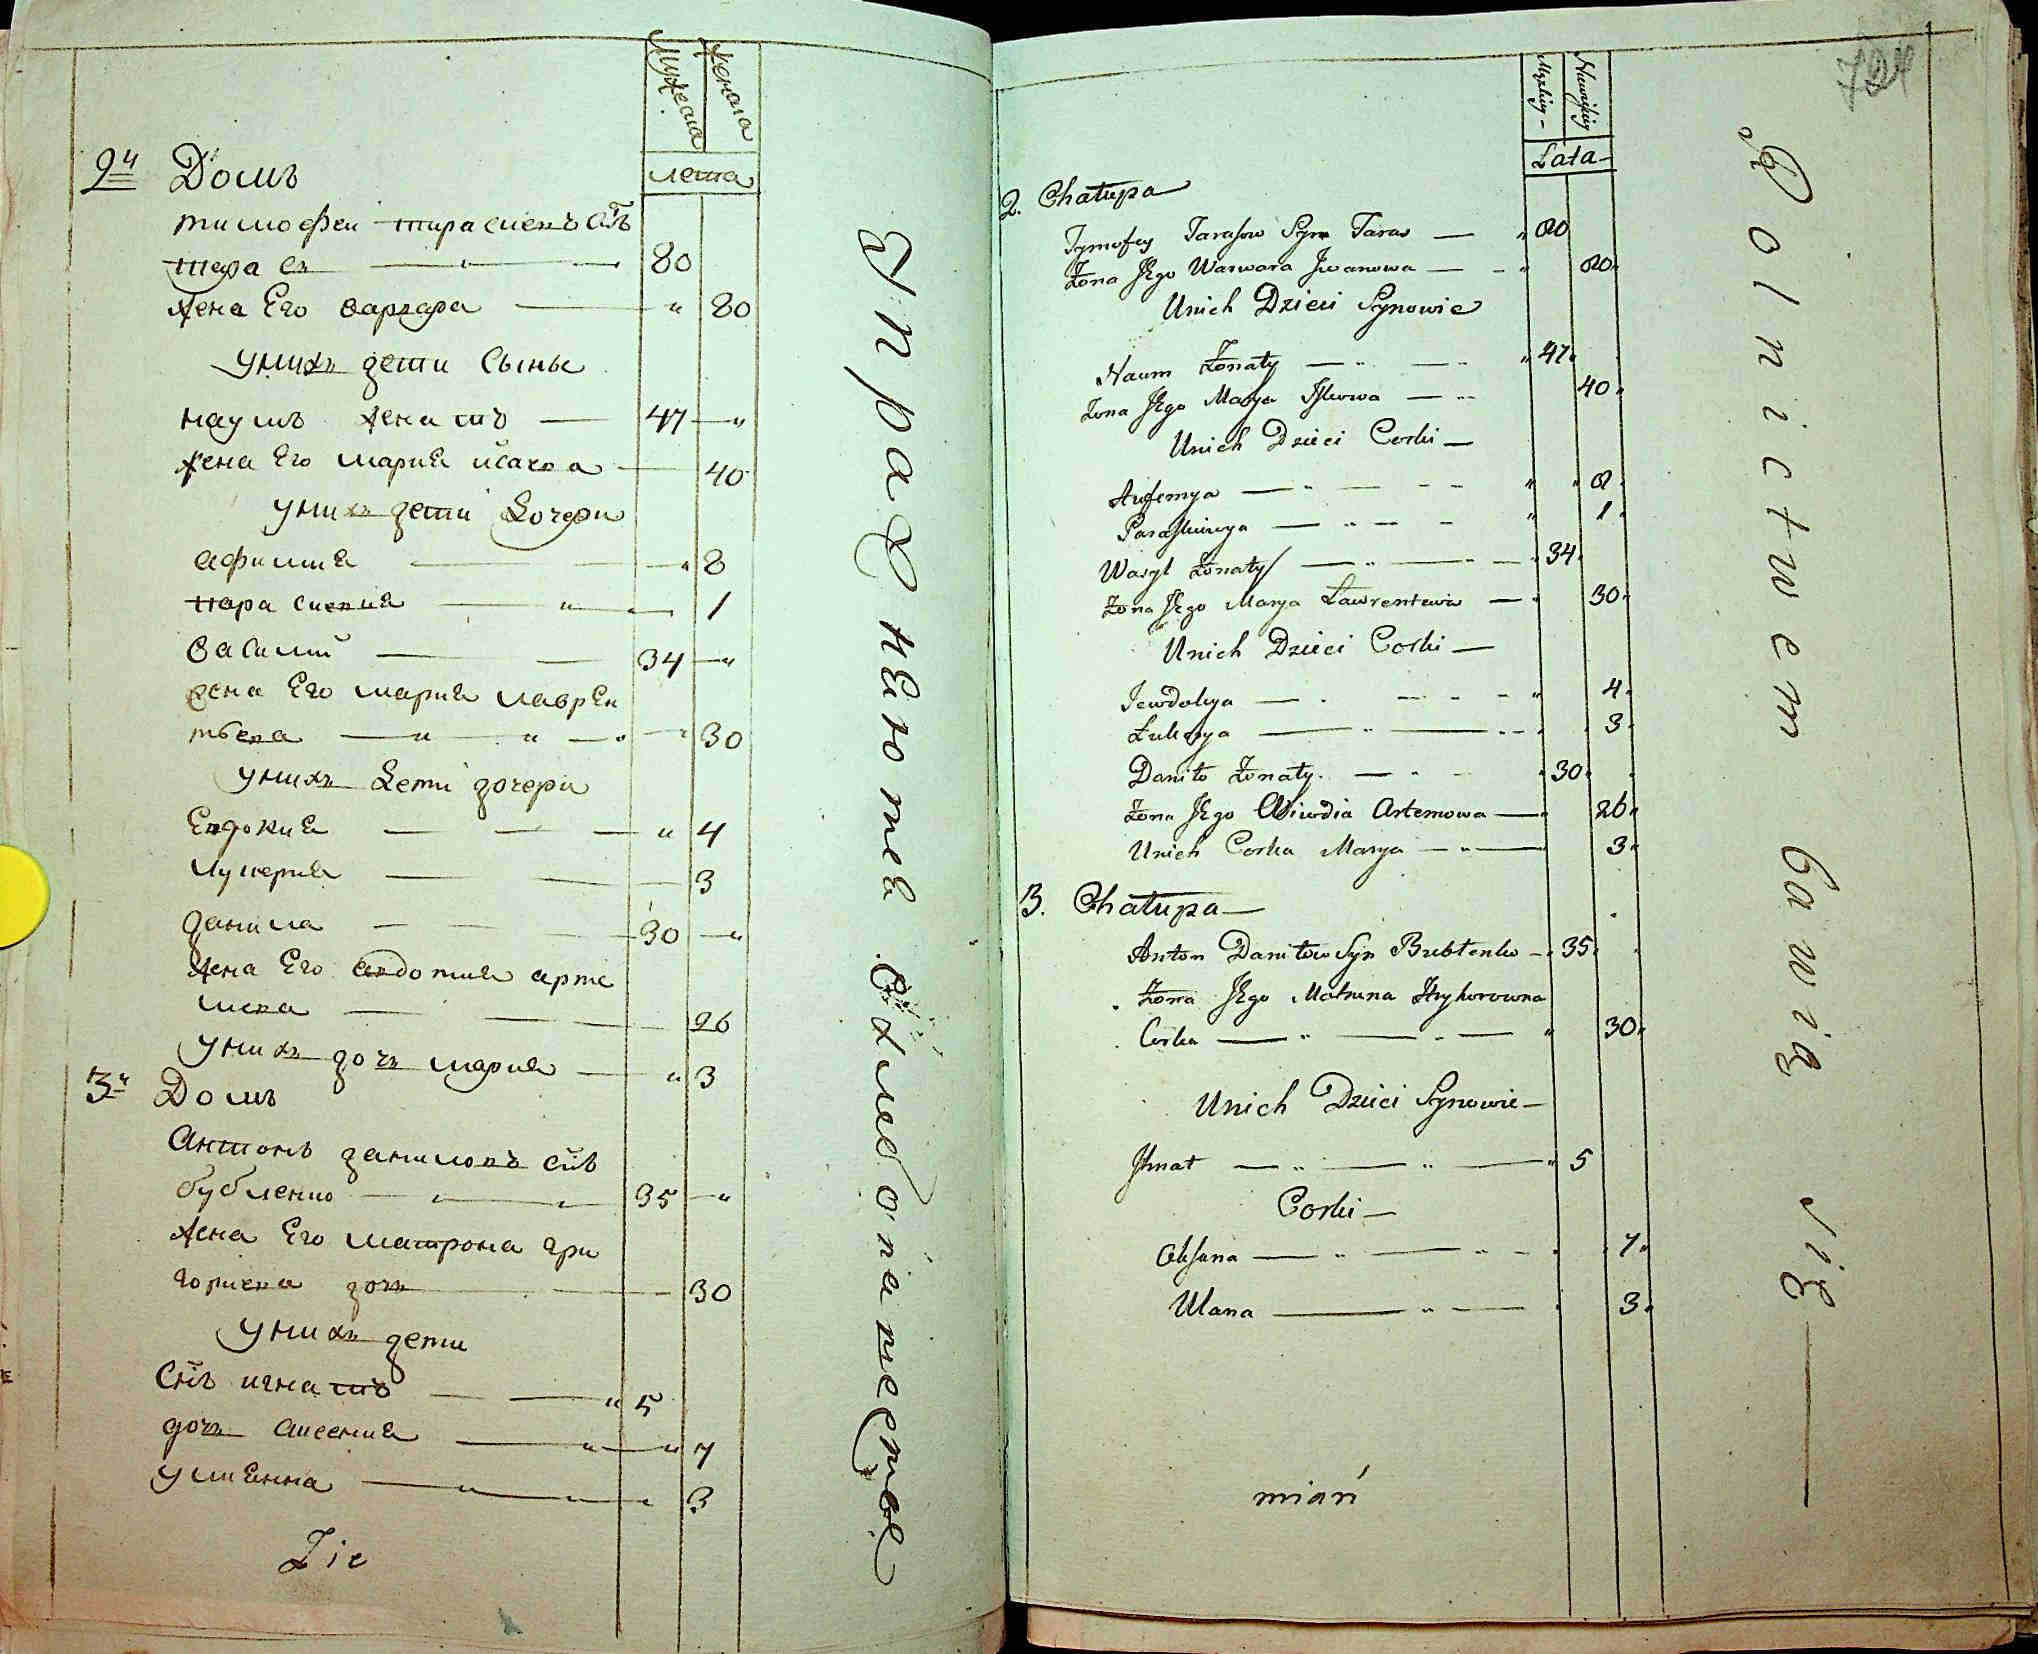 Мужска
женска
лета
2й Домъ
тимофеи тарасиевъ сынъ
тарасъ 80
жена Его варвара " 80
унихъ дети Сыны
наумъ женатъ 47 "
жена Его мариа исаева 40
унихъ дети дочери
афимиа " 8
парасковиа " 1
василий 34 "
жена Его мариа лаврен
тьева " 30
унихъ дети дочери
Евдокиа " 4
лукериа 3
данила 30 "
жена Его авдотиа арте
мева 26
унихъ дочь мариа " 3
3й Домъ
Антонъ даниловъ сынъ
бубленко 35 "
жена Его матрона гри
гориева дочь 30
унихъ дети
Сынъ игнатъ " 5
дочь аксениа " 7
улианна 3
Zie
упражняютса Хлебопашествомъ
724
Męzkiey
Niewieskiey
Lata
2. Chałupa
Tymofey Tarasow Syn Taras " 80
Żona Jego Warwara Jwanowa " 80
Unich Dzieci Synowie
Naum Żonaty " 47
Żona Jego Marya 40
Unich Dzieci Corki
Aufemya " " 8
Paraskiewya " 1
Wasyl Żonaty 34
Żona Jego Marya Lawrentewa 30
Unich Dzieci Corki
Jewdokya " 4
Łukerya 3
Daniło Żonaty 30
Żona Jego Awdia Artemowa 26
Unich Corka Marya 3
3. Chałupa
Anton Daniłow Syn Bubłenko 35
Żona Jego Matruna Hryhorowna
Corka " 30
Unich Dzieci Synowie
Jhnat " 5
Corki
Oksana 7
Ulana 3
mian
Rolnictwem bawią się